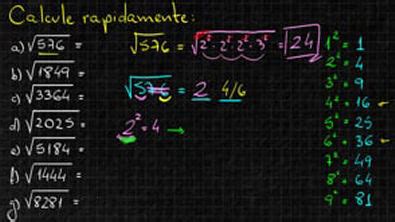 Calcule rapidamente:
a) √576 =
b) √1849 =
c) √3364 =
d) √2025 =
e) √5184 =
f) √1444 =
g) √8281 =
√576 = √2²·2²·2²·3² = 24
√576 = 2 4/6
2² = 4 →
1² = 1
2² = 4
3² = 9
4² = 16 ←
5² = 25
6² = 36 ←
7² = 49
8² = 64
9² = 81